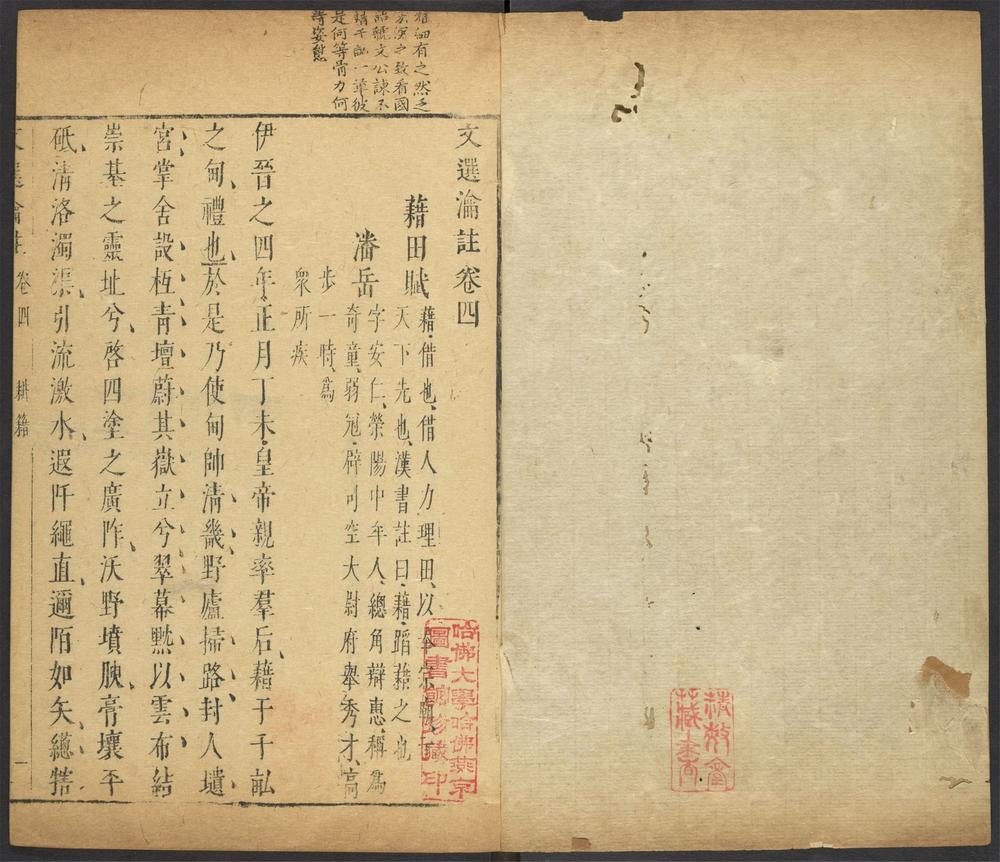 文選瀹註卷四
藉田賦
藉借也借人力理田以奉宗廟
天下先也漢書註曰藉蹈藉之也
潘岳
字安仁榮陽中牟人總角辯惠稱為
奇童弱冠辟司空大尉府舉秀才高
步一時為
衆所疾
伊晉之四年正月丁未皇帝親率羣后藉于千畝
之甸禮也於是乃使甸帥清畿野廬掃路封人壝
宮掌舍設枑青壇蔚其嶽立兮翠幕黕以雲布結
崇基之靈址兮啓四塗之廣阼沃野墳腴膏壤平
砥清洛濁渠引流激水遐阡繩直邇陌如矢䓗犗
卷四
耕籍
一
細有之然乏
之致看國
語虢文公諫不
籍千畝一章彼
是何等骨力何
等姿態
哈佛大學哈佛燕京
圖書館珍藏印
藏書